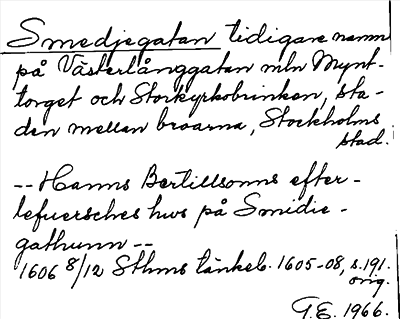 Smedjegatan tidigare namn
på Västerlånggatan mln Mynt-
torget och Storkyrkobrinken, sta-
den mellan broarna, Stockholms
stad.
-- Hanns Bertillsonns efter-
lefuersches hws på Smidie-
gathunn --
1606 8/12 Sthms tänkeb. 1605-08, s.191.
orig.
G.E. 1966.